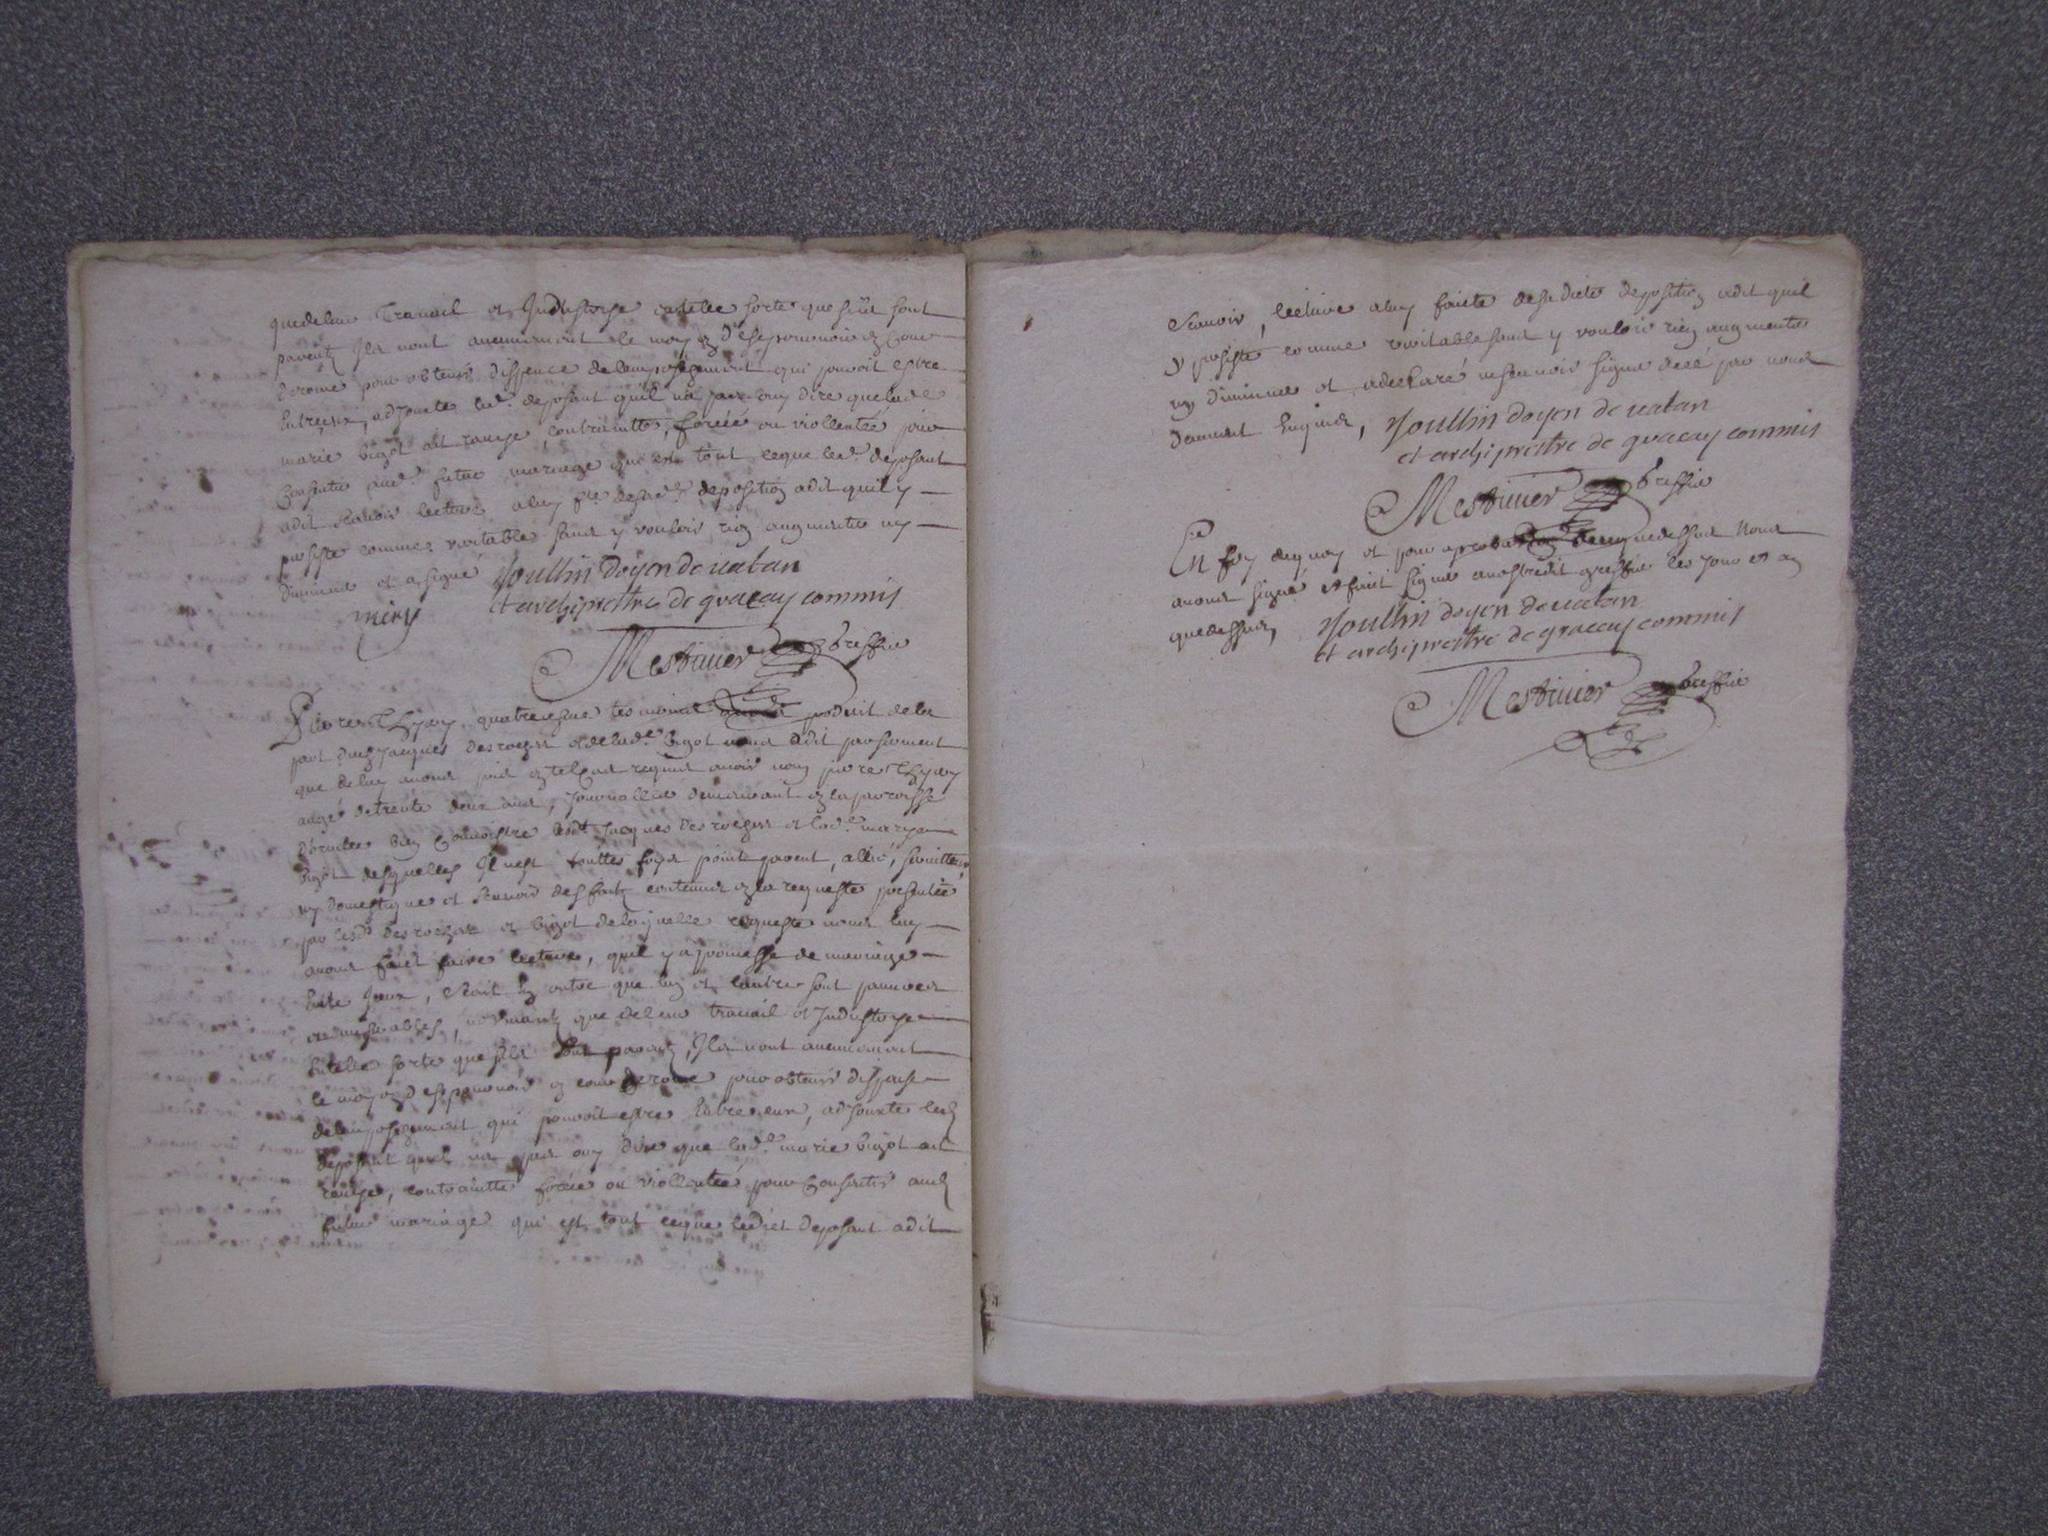 que de leur travail et Industrye en telle sorte que sil sont
parentz Ils nont aucunement le moyen desepourvoir en cour
de rome pour obtenir dispence de lempeschement qui pouvoit estre
Entreeux, adjoute led. deposant quil na pas ouy dire que lade
marie bigot ait rauye, contrainte, forcée ou viollentée pour
Consentir aud. futur mariage qui est tout ceque led. deposant
adit scavoir lecture aluy fte. desad. deposition adit quil y
persiste comme veritable sans y vouloir rien augmenter ny
diminuer et a signé
Joullin doyen de vatan
et archiprettre de gracay commis
mery
Mestivier Greffier
Pierre quatriesme tesmoins produit de la
part dud. Jacques desroches et de lad. bigot nous adit par serment
que de luy avons pris en tel cas requis avoir nom pierre
aagé de trente deux ans, Journallier demeurant en la parroisse
bien Connoistre led. Jacques Desroches et lad. marye
bigot desquelles Il nest touttes foys point parent, allié, serviteur
ny domestique et scavoir des faitz contenus en la requeste presentée
par lesd. desroches et bigot de laquelle requeste nous luy
avons faict faire lecture, quil y a promesse de mariage
Entre Jeux, scait en outre que lun et lautre sont pauvres
et miserables, ne vivants que de leur travail et Industrye
En telle sorte que sils sont parentz, Ils nont aucunement
le moyen desepourvoir en cour de rome pour obtenir dispense
de lempeschement qui pouvoit estre Entre eux, adjouste led.
deposant quil na pas ouy dire que lad. marie bigot ait
rauye, contraintte forcée ou viollentée pour Consentir aud.
futur mariage qui est tout ceque ledict deposant adit
scavoir, lecture aluy faicte desadicte deposition adit quil
y persiste comme veritable sans y vouloir rien augmenter
ny diminuer et adeclaré ne scavoir signer de ce par nous
deument Enquis,
Joullin doyen de vatan
et archiprettre de gracay commis
Mestivier Greffier
En foy dequoy et pour aprobation quedessus Nous
avons signé et faict signer anostredit greffier les jour et an
quedessus,
Joullin doyen de vatan
et archiprettre de gracay commis
Mestivier Greffier